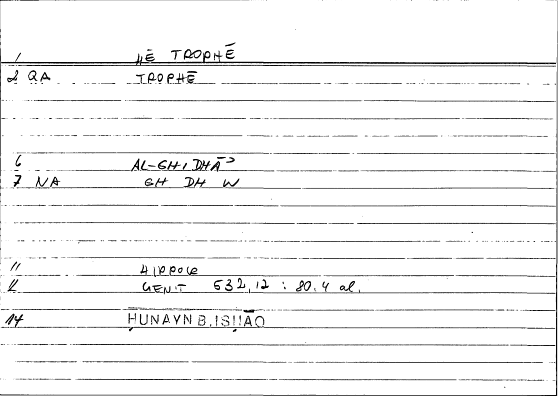 1 HĒ TROPHĒ
2 QA TROPHĒ
6 AL-GHIDHĀʾ
7 NA GH DH W
11 HIPPOCR
12 GENT 532,12 : 80.4 al.
14 ḤUNAYN B. ISḤĀQ